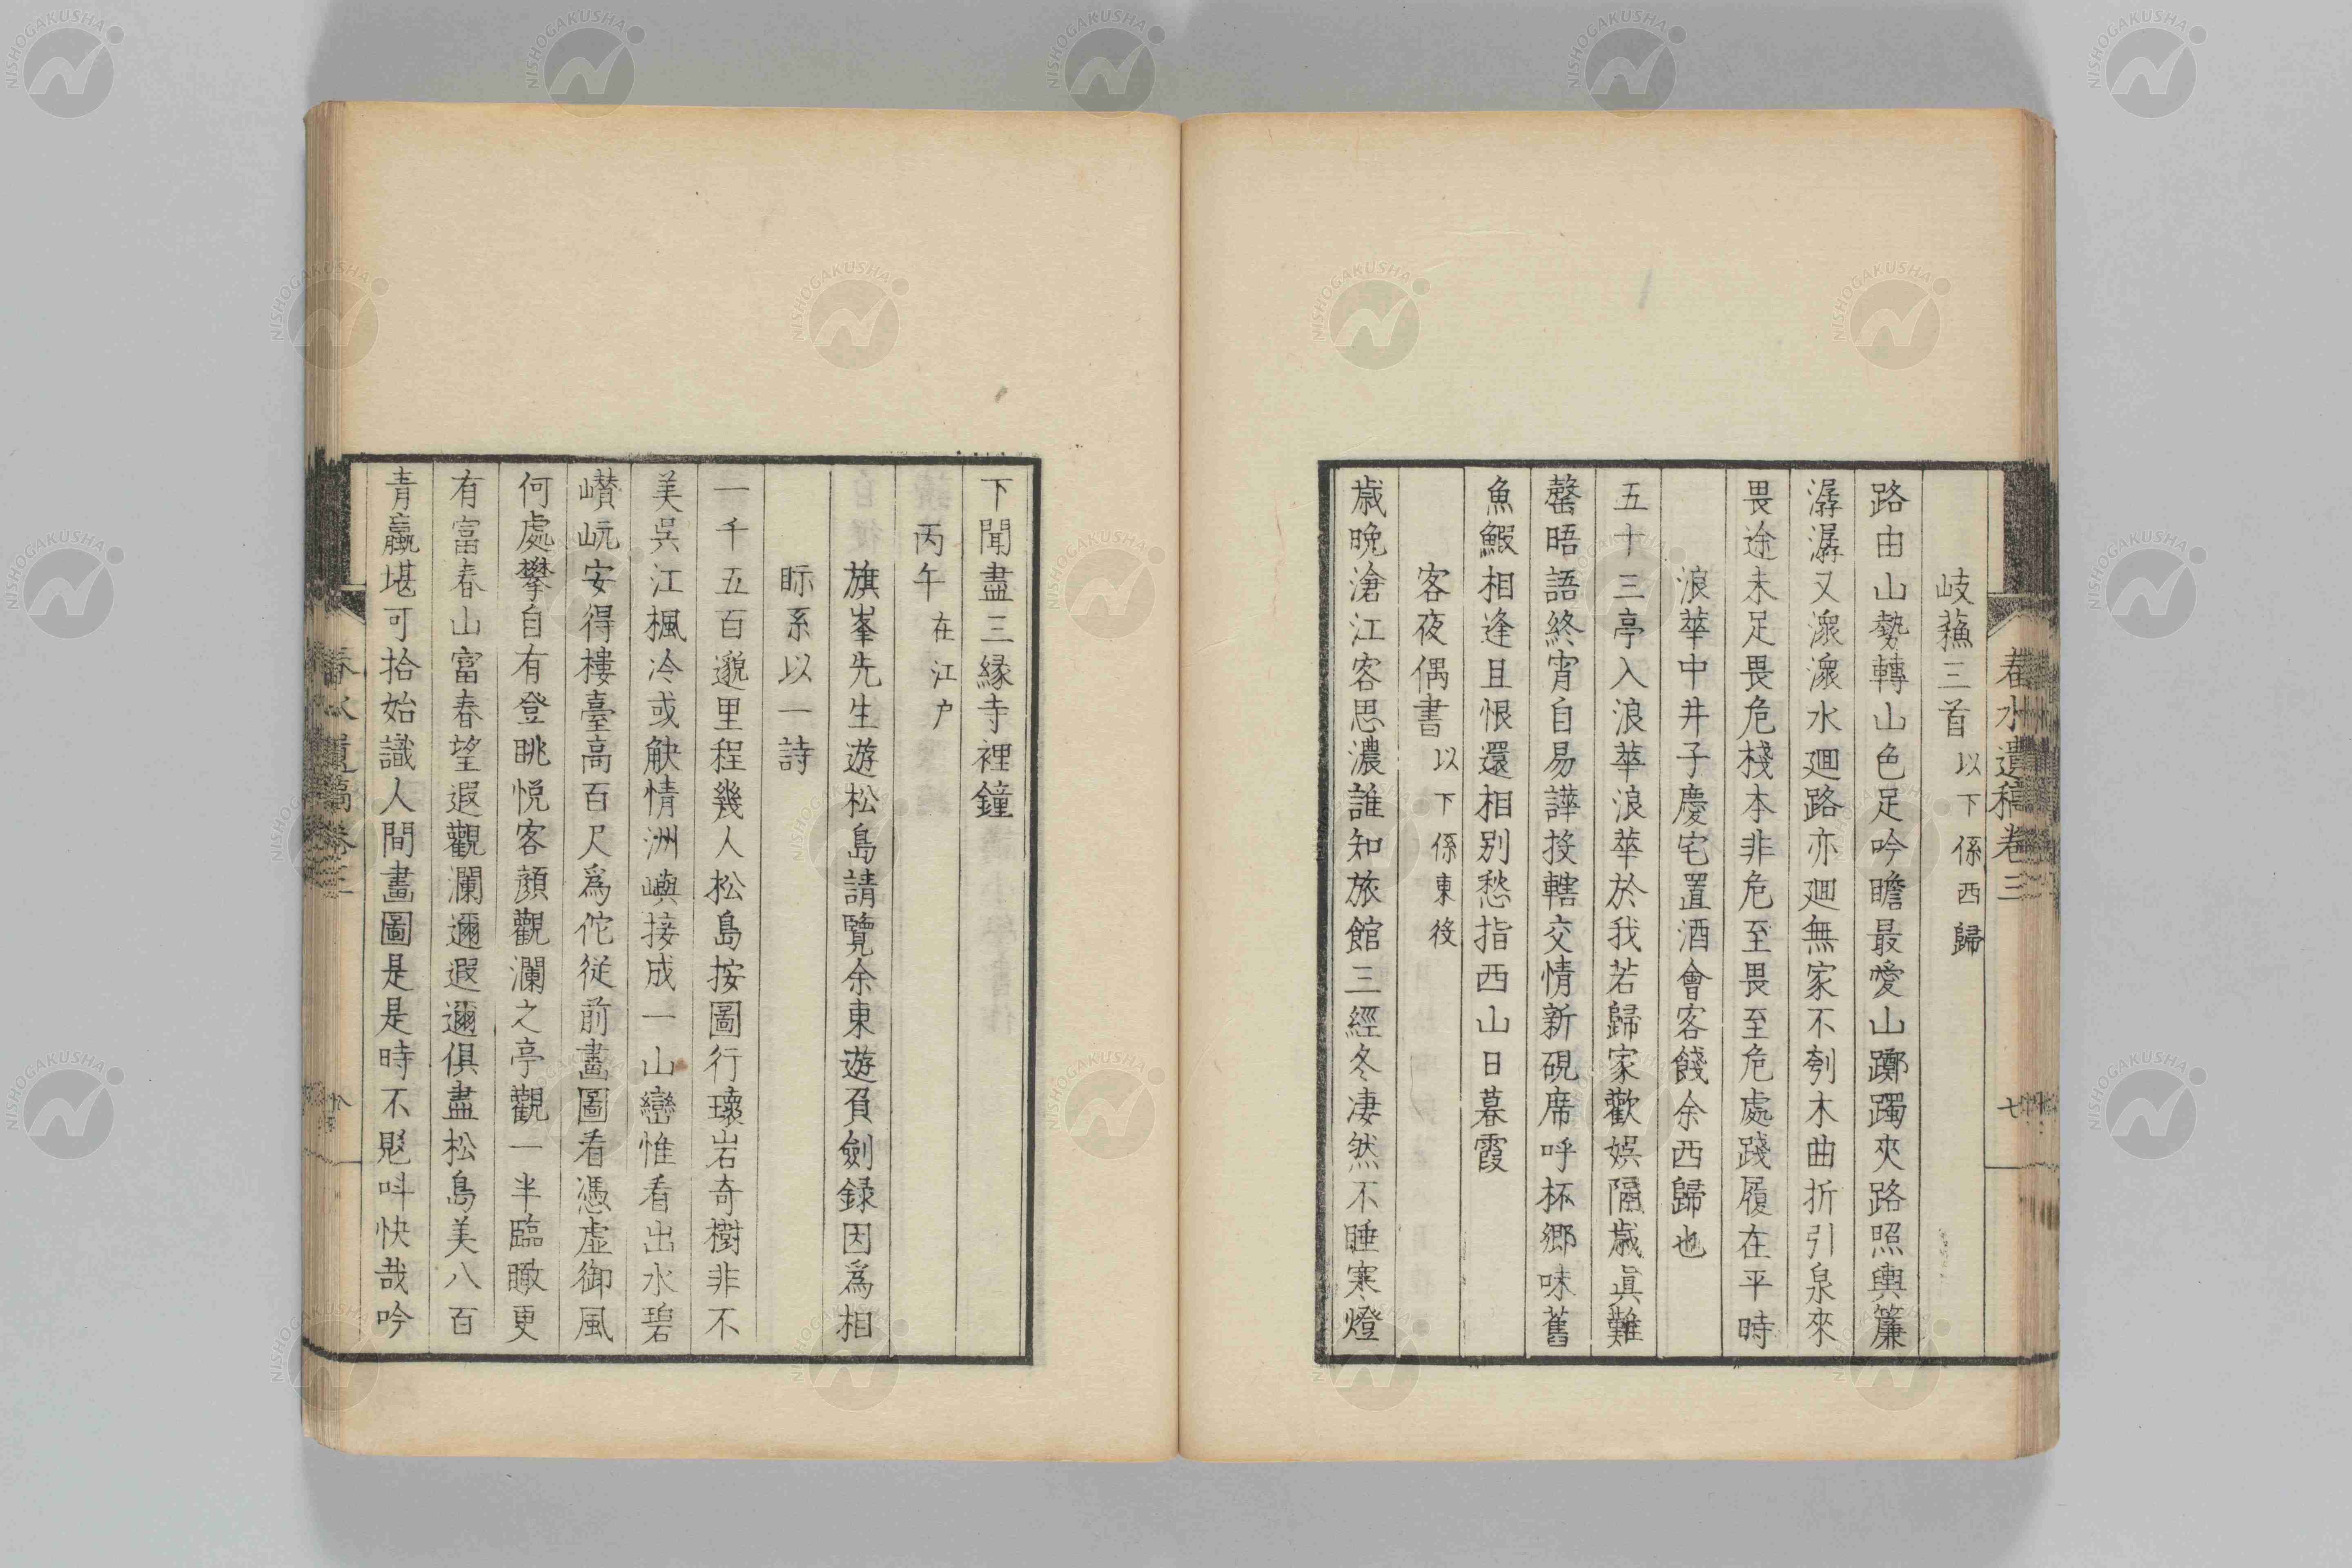 春水遺稿卷三
七
岐蘓三首 以下係西歸
路由山勢轉山色足吟瞻最愛山躑躅夾路照輿簾
潺潺又潨潨水廻路亦廻無家不刳木曲折引泉來
畏途未足畏危棧本非危至畏至危處踐履在平時
浪華中井子慶宅置酒會客餞余西歸也
五十三亭入浪華浪華於我若歸家歡娯隔歳眞難
罄晤語終宵自易譁投轄交情新硯席呼杯郷味舊
魚鰕相逢且恨還相別愁指西山日暮霞
客夜偶書 以下係東役
歳晩滄江客思濃誰知旅館三經冬凄然不睡寒燈
下聞盡三縁寺裡鐘
丙午 在江戸
旗峯先生遊松島請覽余東遊負劍録因爲相
眎系以一詩
一千五百邈里程幾人松島按圖行瓌岩奇樹非不
美呉江楓冷或觖情洲嶼接成一山巒惟看出水碧
巑岏安得樓臺高百尺爲佗從前畵圖看憑虚御風
何處攀自有登眺悦客顔觀瀾之亭觀一半臨瞰更
有富春山富春望遐觀瀾邇遐邇倶盡松島美八百
青蠃堪可拾始識人間畵圖是是時不覺呌快哉吟
春水遺稿卷三
NISHOGAKUSHA